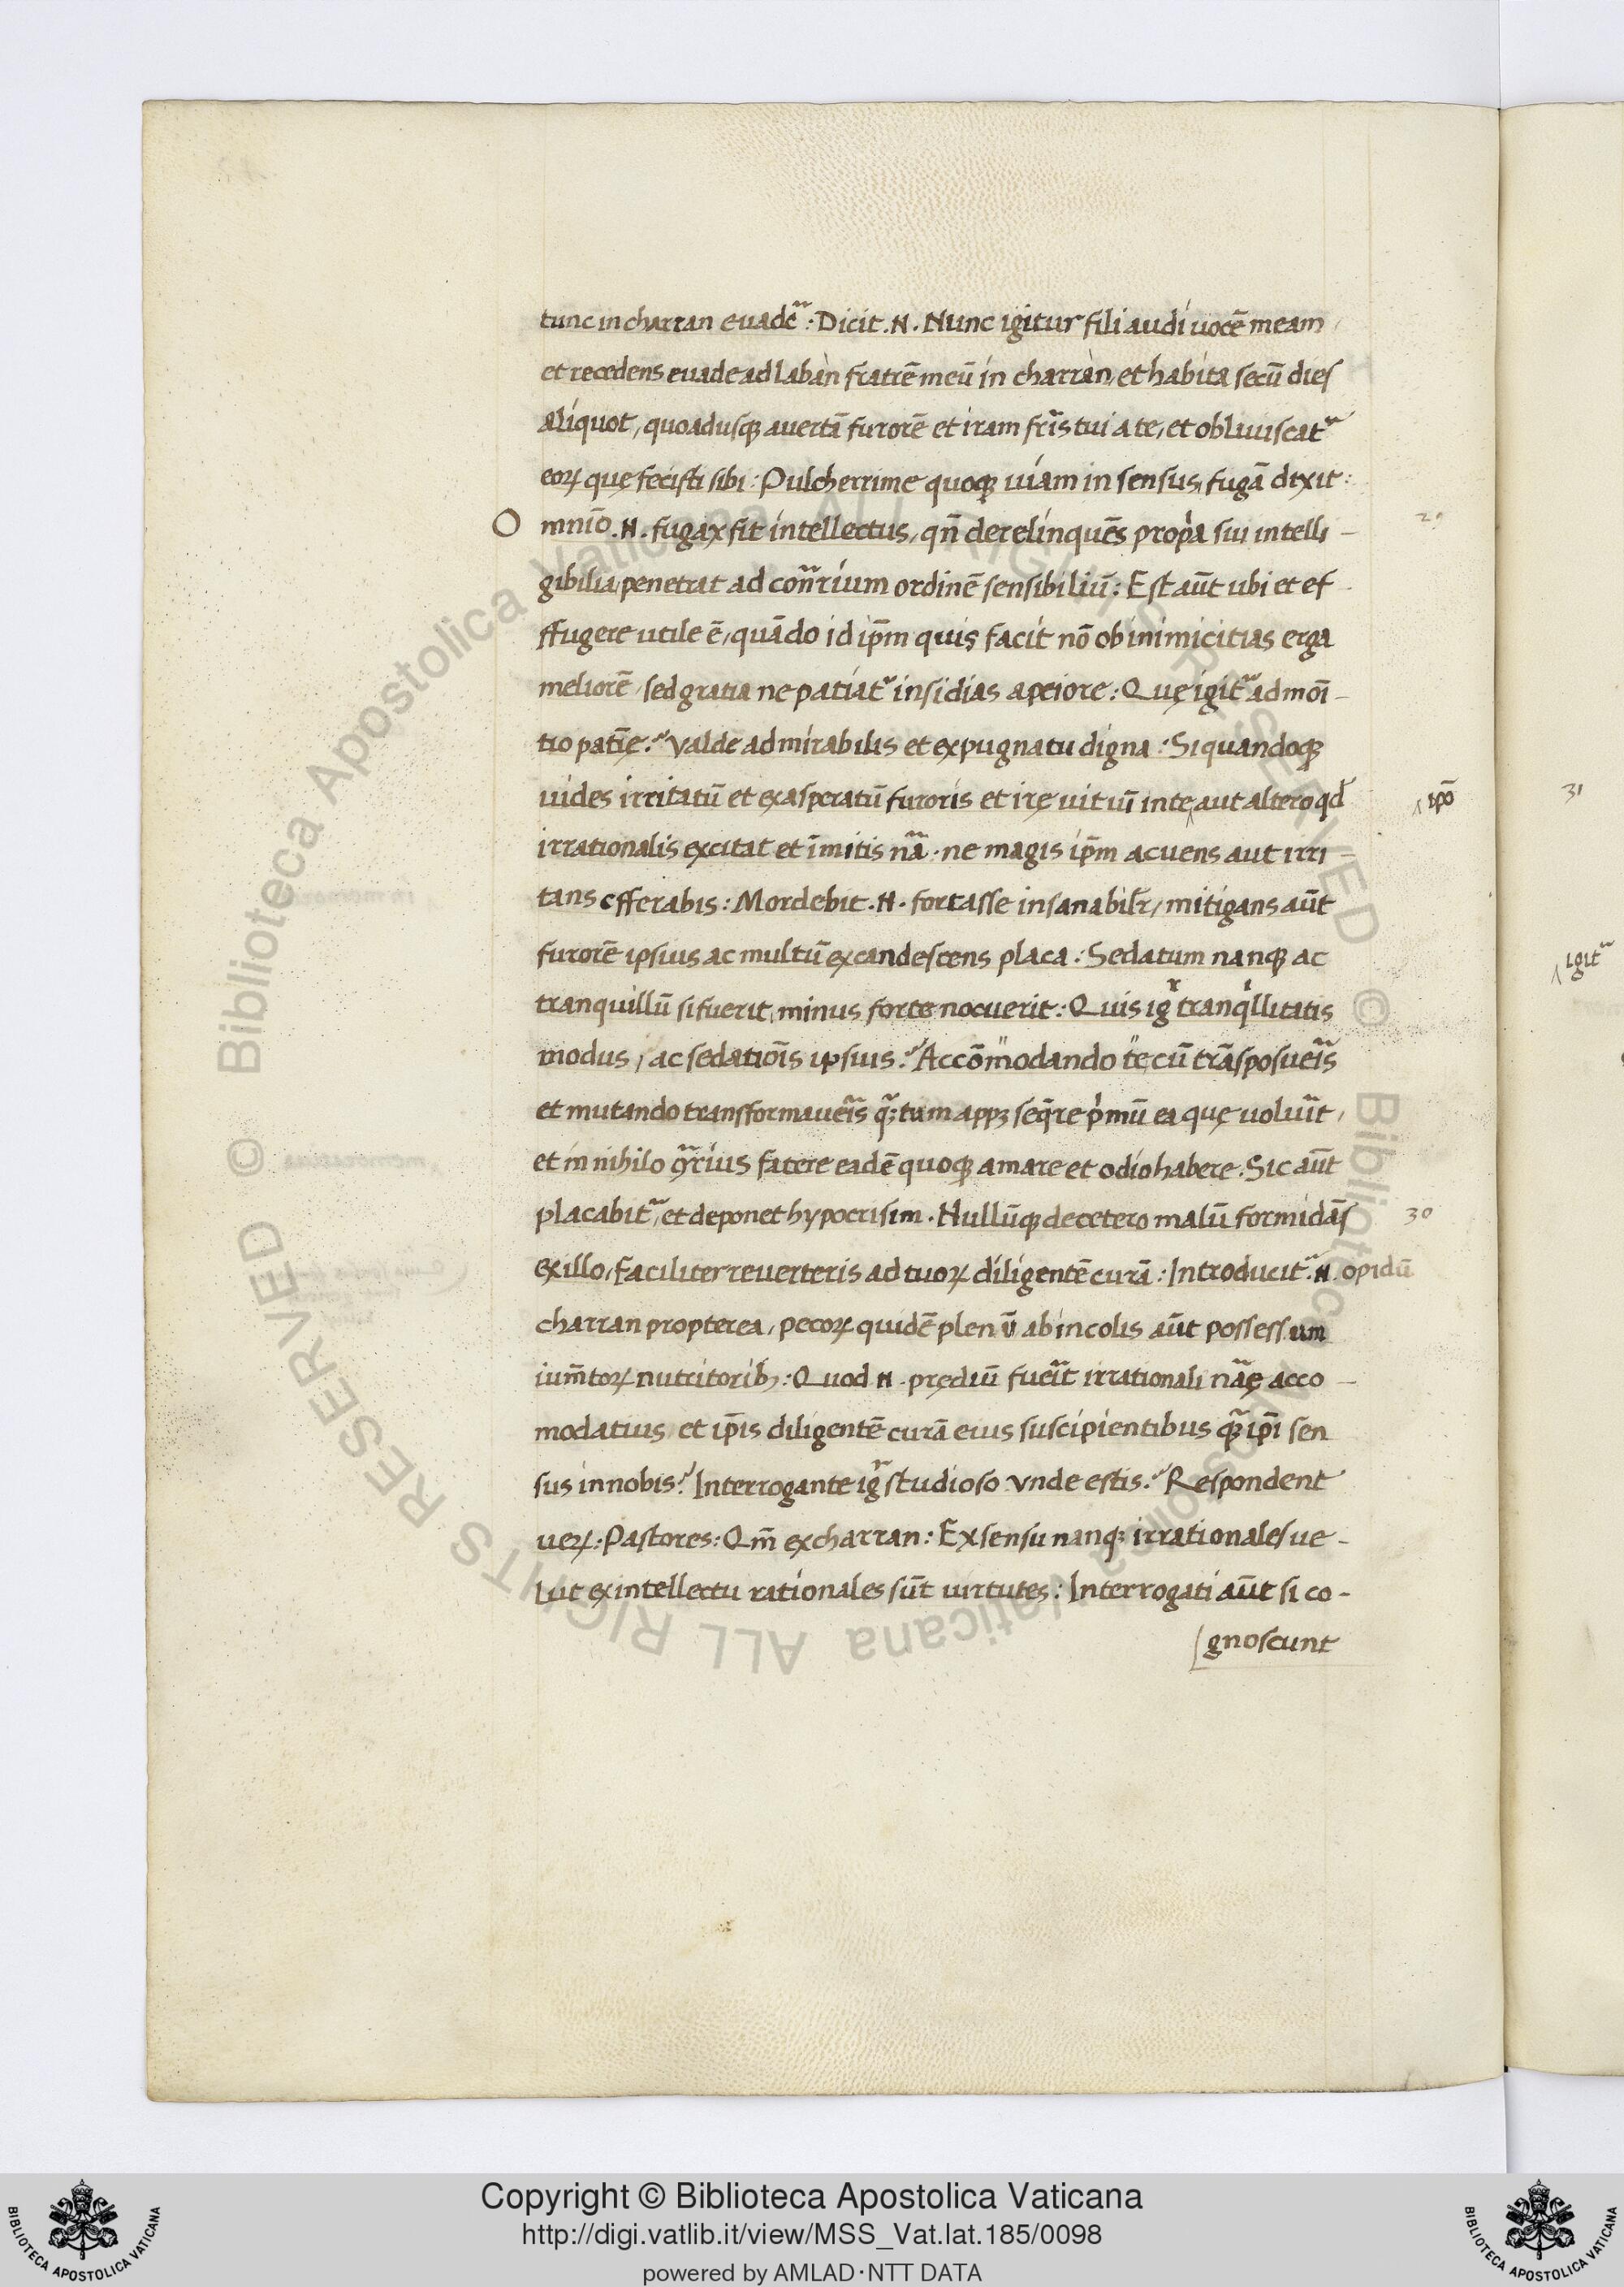 tunc in charran euadet᷑: Dicit .N. Nunc igitur fili audi uocē meam
et recedens euade ad labàn fratrē meū in charràn, et habita secū dies
aliquot, quoadusqꝫ auertā furorē et iram fr̄is tui a te, et obliuiscat᷑
eoꝝ quę fecisti sibi: Pulcherrime quoqꝫ uiam in sensus, fugā dixit:
O mnīo .N. fugax fit intellectus, qn̄ derelinquēs propria sui intelli-
gibilia, penetrat ad con̄rium ordinē sensibiliū: Est aūt ubi et ef
ffugere utile ē, quādo id ip̄m quis facit nō ob inimicitias erga
meliorē, sed gratia ne patiat᷑ insidias a peiore: Quę igit᷑ admoī-
tio pat̄ię? Valde admirabilis et expugnatu digna: Si quandoqꝫ
uides irritatū et exasperatū furoris et irę uitiū in te aut altero qd̄
irrationalis excitat et īmitis nā. ne magis ip̄m acuens aut irri-
tans efferabis: Mordebit .N. fortasse insanabilr̄, mitigans aūt
furorē ipsius ac multū excandescens placa: Sedatum nanqꝫ ac
tranquillū si fuerit, minus forte nocuerit: Quis igr̄ tranqͥllitatis
modus, ac sedatiōis ipsius? Accōmodando te cū trāsposueīs
et mutando transformaueīs qꝫ tum appꝫ seqͥre pͥmū ea quę uoluīt,
et in nihilo ꝯr̄ius facere eadē quoqꝫ amare et odio habere. Sic aūt
placabit᷑, et deponet hypocrisim. Nullūqꝫ de cetero malū formidās
ex illo, faciliter reuerteris ad tuoꝝ diligentē curā: Introducit᷑ .N. opidū
charran propterea, pecoꝝ quidē plenū ab incolis aūt possessum
ium̄toꝝ nutritoribꝫ: Quod .N. prędiū fueīt irrationali nāę acco-
modatius, et ip̄is diligentē curā eius suscipientibus qꝫ ip̄i sen
sus in nobis? Interrogante igr̄ studioso vnde estis? Respondent
ueꝝ: Pastores: Qm̄ ex charran: Ex sensu nanqꝫ irrationales ue-
lut ex intellectu rationales sūt uirtutes: Interrogati aūt si co-
gnoscunt
29
ip̄o
30
31
igit᷑
Copyright © Biblioteca Apostolica Vaticana
http://digi.vatlib.it/view/MSS_Vat.lat.185/0098
powered by AMLAD·NTT DATA
BIBLIOTECA APOSTOLICA VATICANA
BIBLIOTECA APOSTOLICA VATICANA
Biblioteca Apostolica Vaticana ALL RIGHTS RESERVED © Biblioteca Apostolica Vaticana ALL RIGHTS RESERVED ©